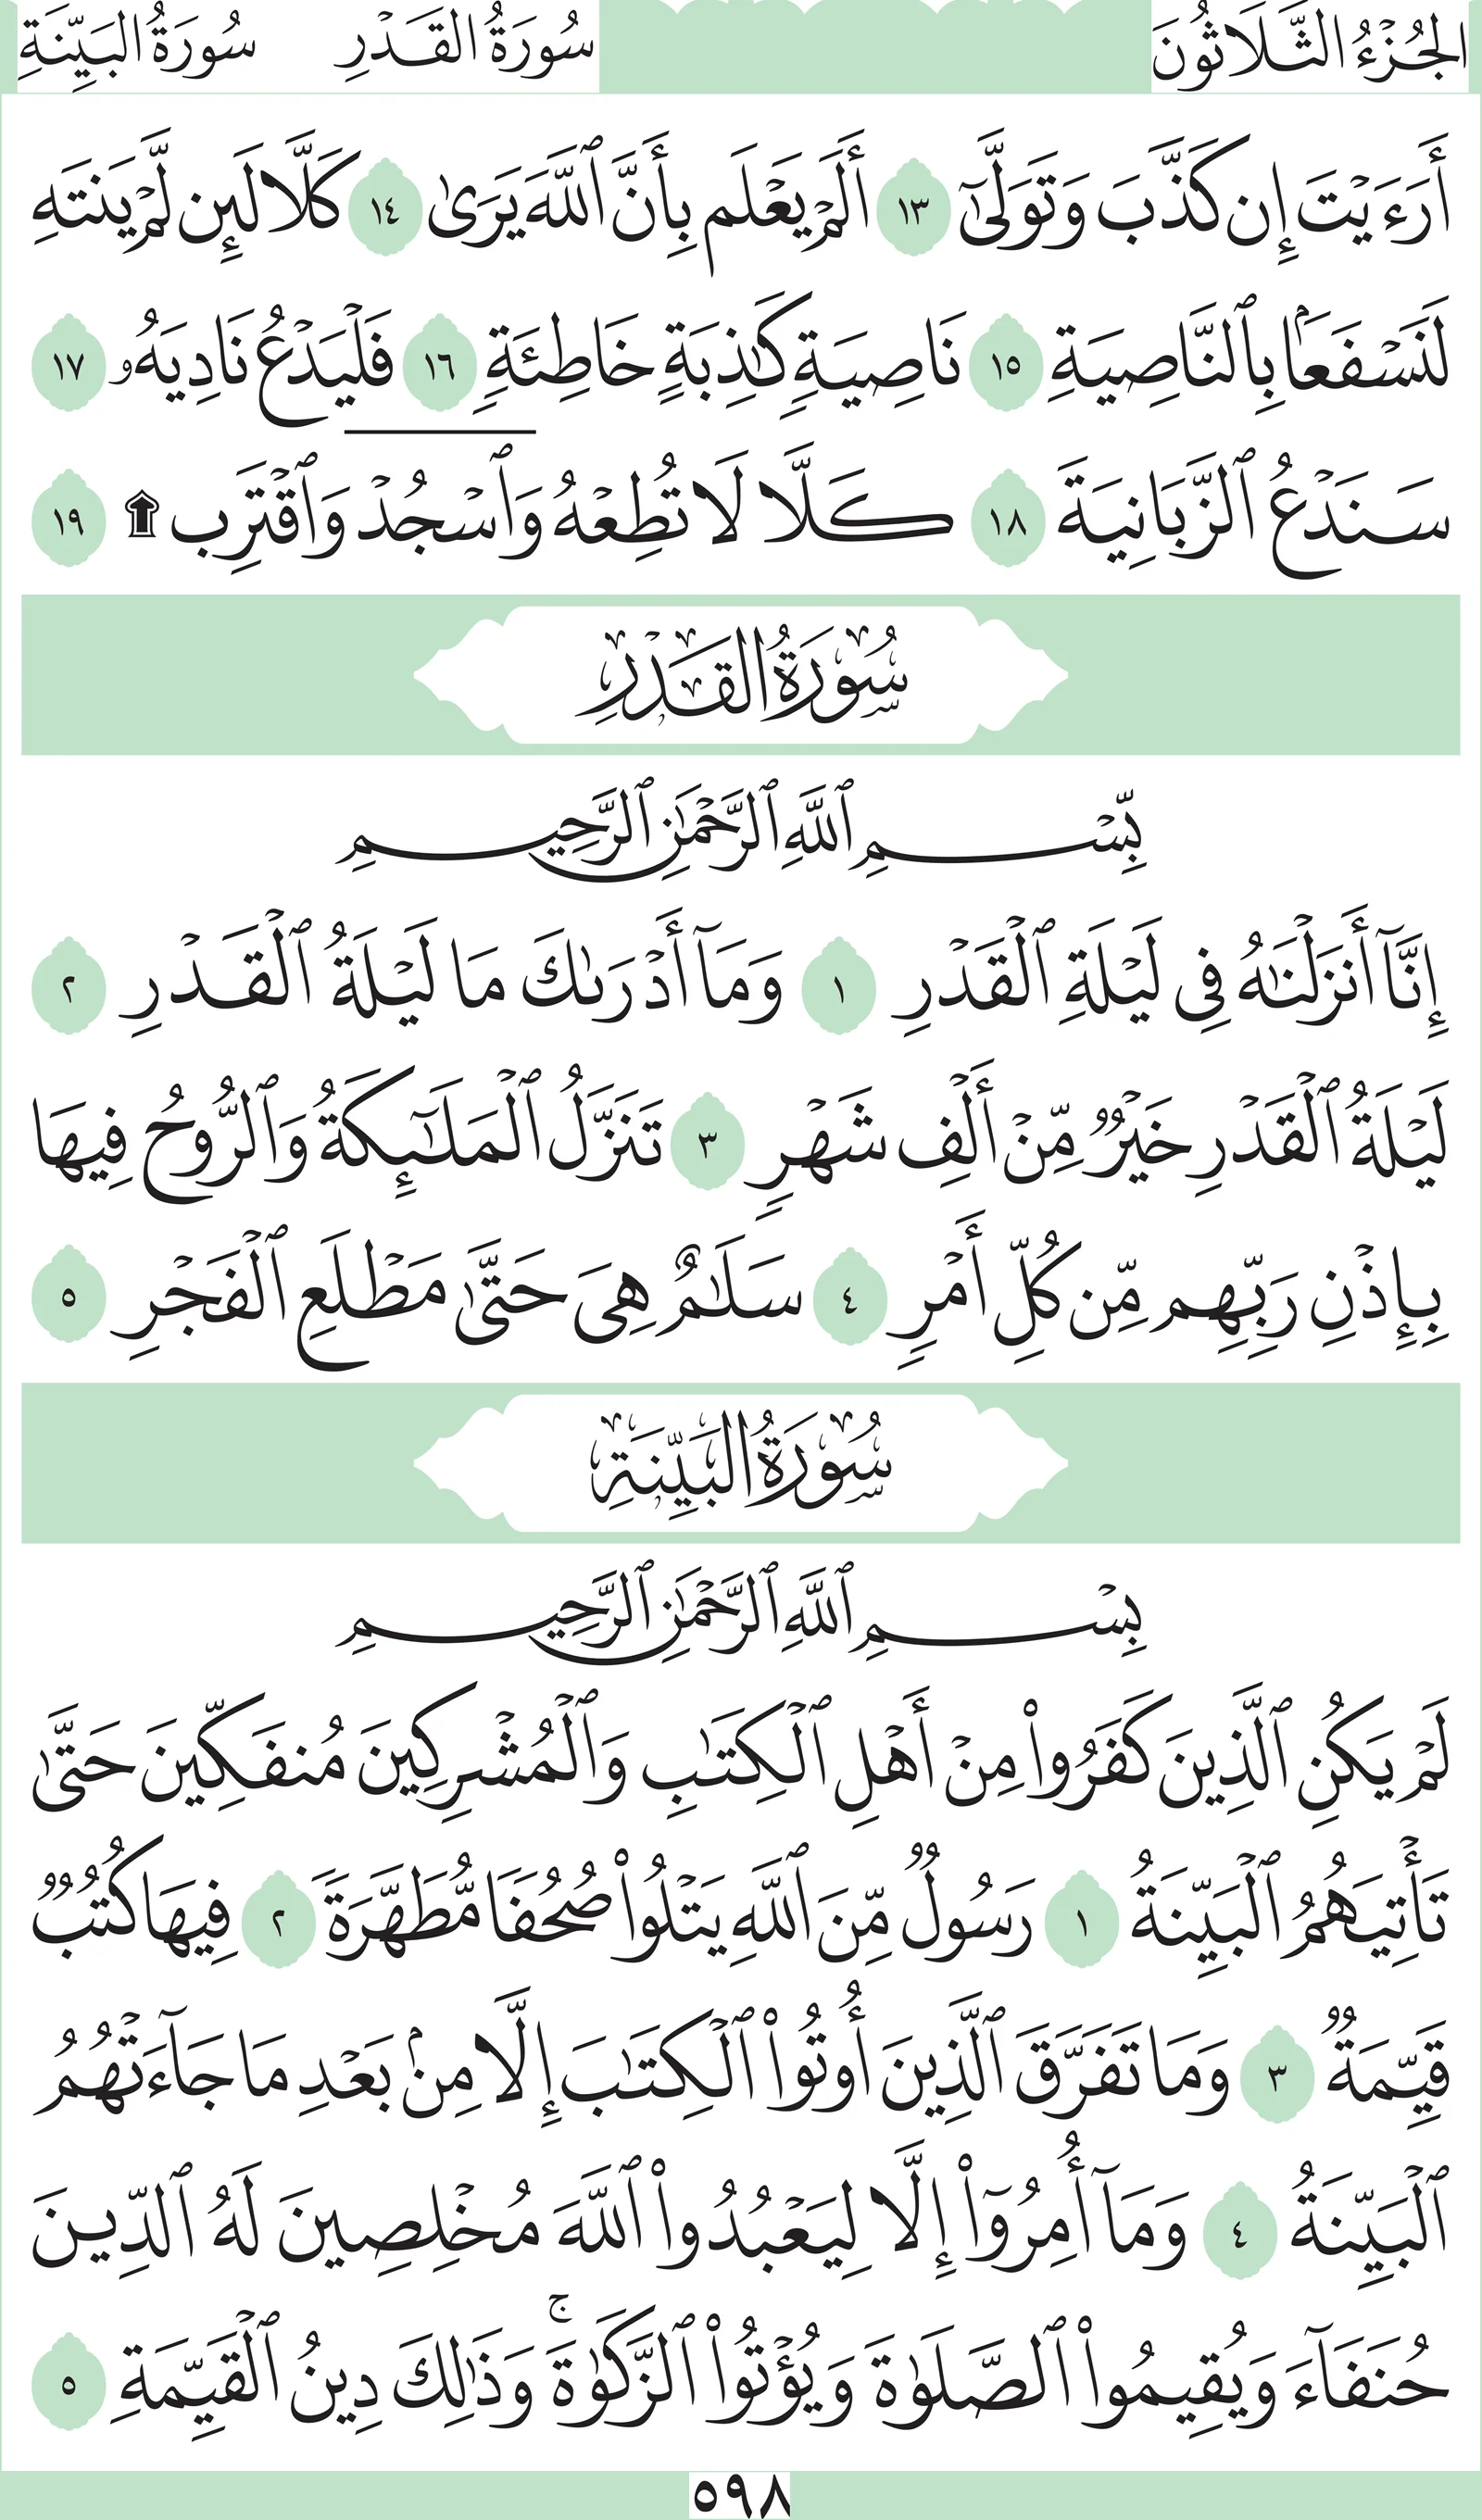 الجُزْءُ الثَّلَاثُونَ سُورَةُ القَدْرِ سُورَةُ البَيِّنَةِ
أَرَءَيْتَ إِن كَذَّبَ وَتَوَلَّىٰٓ ١٣ أَلَمْ يَعْلَم بِأَنَّ ٱللَّهَ يَرَىٰ ١٤ كَلَّا لَئِن لَّمْ يَنتَهِ
لَنَسْفَعَۢا بِٱلنَّاصِيَةِ ١٥ نَاصِيَةٍ كَٰذِبَةٍ خَاطِئَةٍ ١٦ فَلْيَدْعُ نَادِيَهُۥ ١٧
سَنَدْعُ ٱلزَّبَانِيَةَ ١٨ كَلَّا لَا تُطِعْهُ وَٱسْجُدْ وَٱقْتَرِب ۩ ١٩
سُورَةُ القَدْرِ
بِّسْمِ ٱللَّهِ ٱلرَّحْمَٰنِ ٱلرَّحِيمِ
إِنَّآ أَنزَلْنَٰهُ فِى لَيْلَةِ ٱلْقَدْرِ ١ وَمَآ أَدْرَىٰكَ مَا لَيْلَةُ ٱلْقَدْرِ ٢
لَيْلَةُ ٱلْقَدْرِ خَيْرٌ مِّنْ أَلْفِ شَهْرٍ ٣ تَنَزَّلُ ٱلْمَلَٰٓئِكَةُ وَٱلرُّوحُ فِيهَا
بِإِذْنِ رَبِّهِم مِّن كُلِّ أَمْرٍ ٤ سَلَٰمٌ هِىَ حَتَّىٰ مَطْلَعِ ٱلْفَجْرِ ٥
سُورَةُ البَيِّنَةِ
بِسْمِ ٱللَّهِ ٱلرَّحْمَٰنِ ٱلرَّحِيمِ
لَمْ يَكُنِ ٱلَّذِينَ كَفَرُوا۟ مِنْ أَهْلِ ٱلْكِتَٰبِ وَٱلْمُشْرِكِينَ مُنفَكِّينَ حَتَّىٰ
تَأْتِيَهُمُ ٱلْبَيِّنَةُ ١ رَسُولٌ مِّنَ ٱللَّهِ يَتْلُوا۟ صُحُفًا مُّطَهَّرَةً ٢ فِيهَا كُتُبٌ
قَيِّمَةٌ ٣ وَمَا تَفَرَّقَ ٱلَّذِينَ أُوتُوا۟ ٱلْكِتَٰبَ إِلَّا مِنۢ بَعْدِ مَا جَآءَتْهُمُ
ٱلْبَيِّنَةُ ٤ وَمَآ أُمِرُوٓا۟ إِلَّا لِيَعْبُدُوا۟ ٱللَّهَ مُخْلِصِينَ لَهُ ٱلدِّينَ
حُنَفَآءَ وَيُقِيمُوا۟ ٱلصَّلَوٰةَ وَيُؤْتُوا۟ ٱلزَّكَوٰةَۚ وَذَٰلِكَ دِينُ ٱلْقَيِّمَةِ ٥
٥٩٨